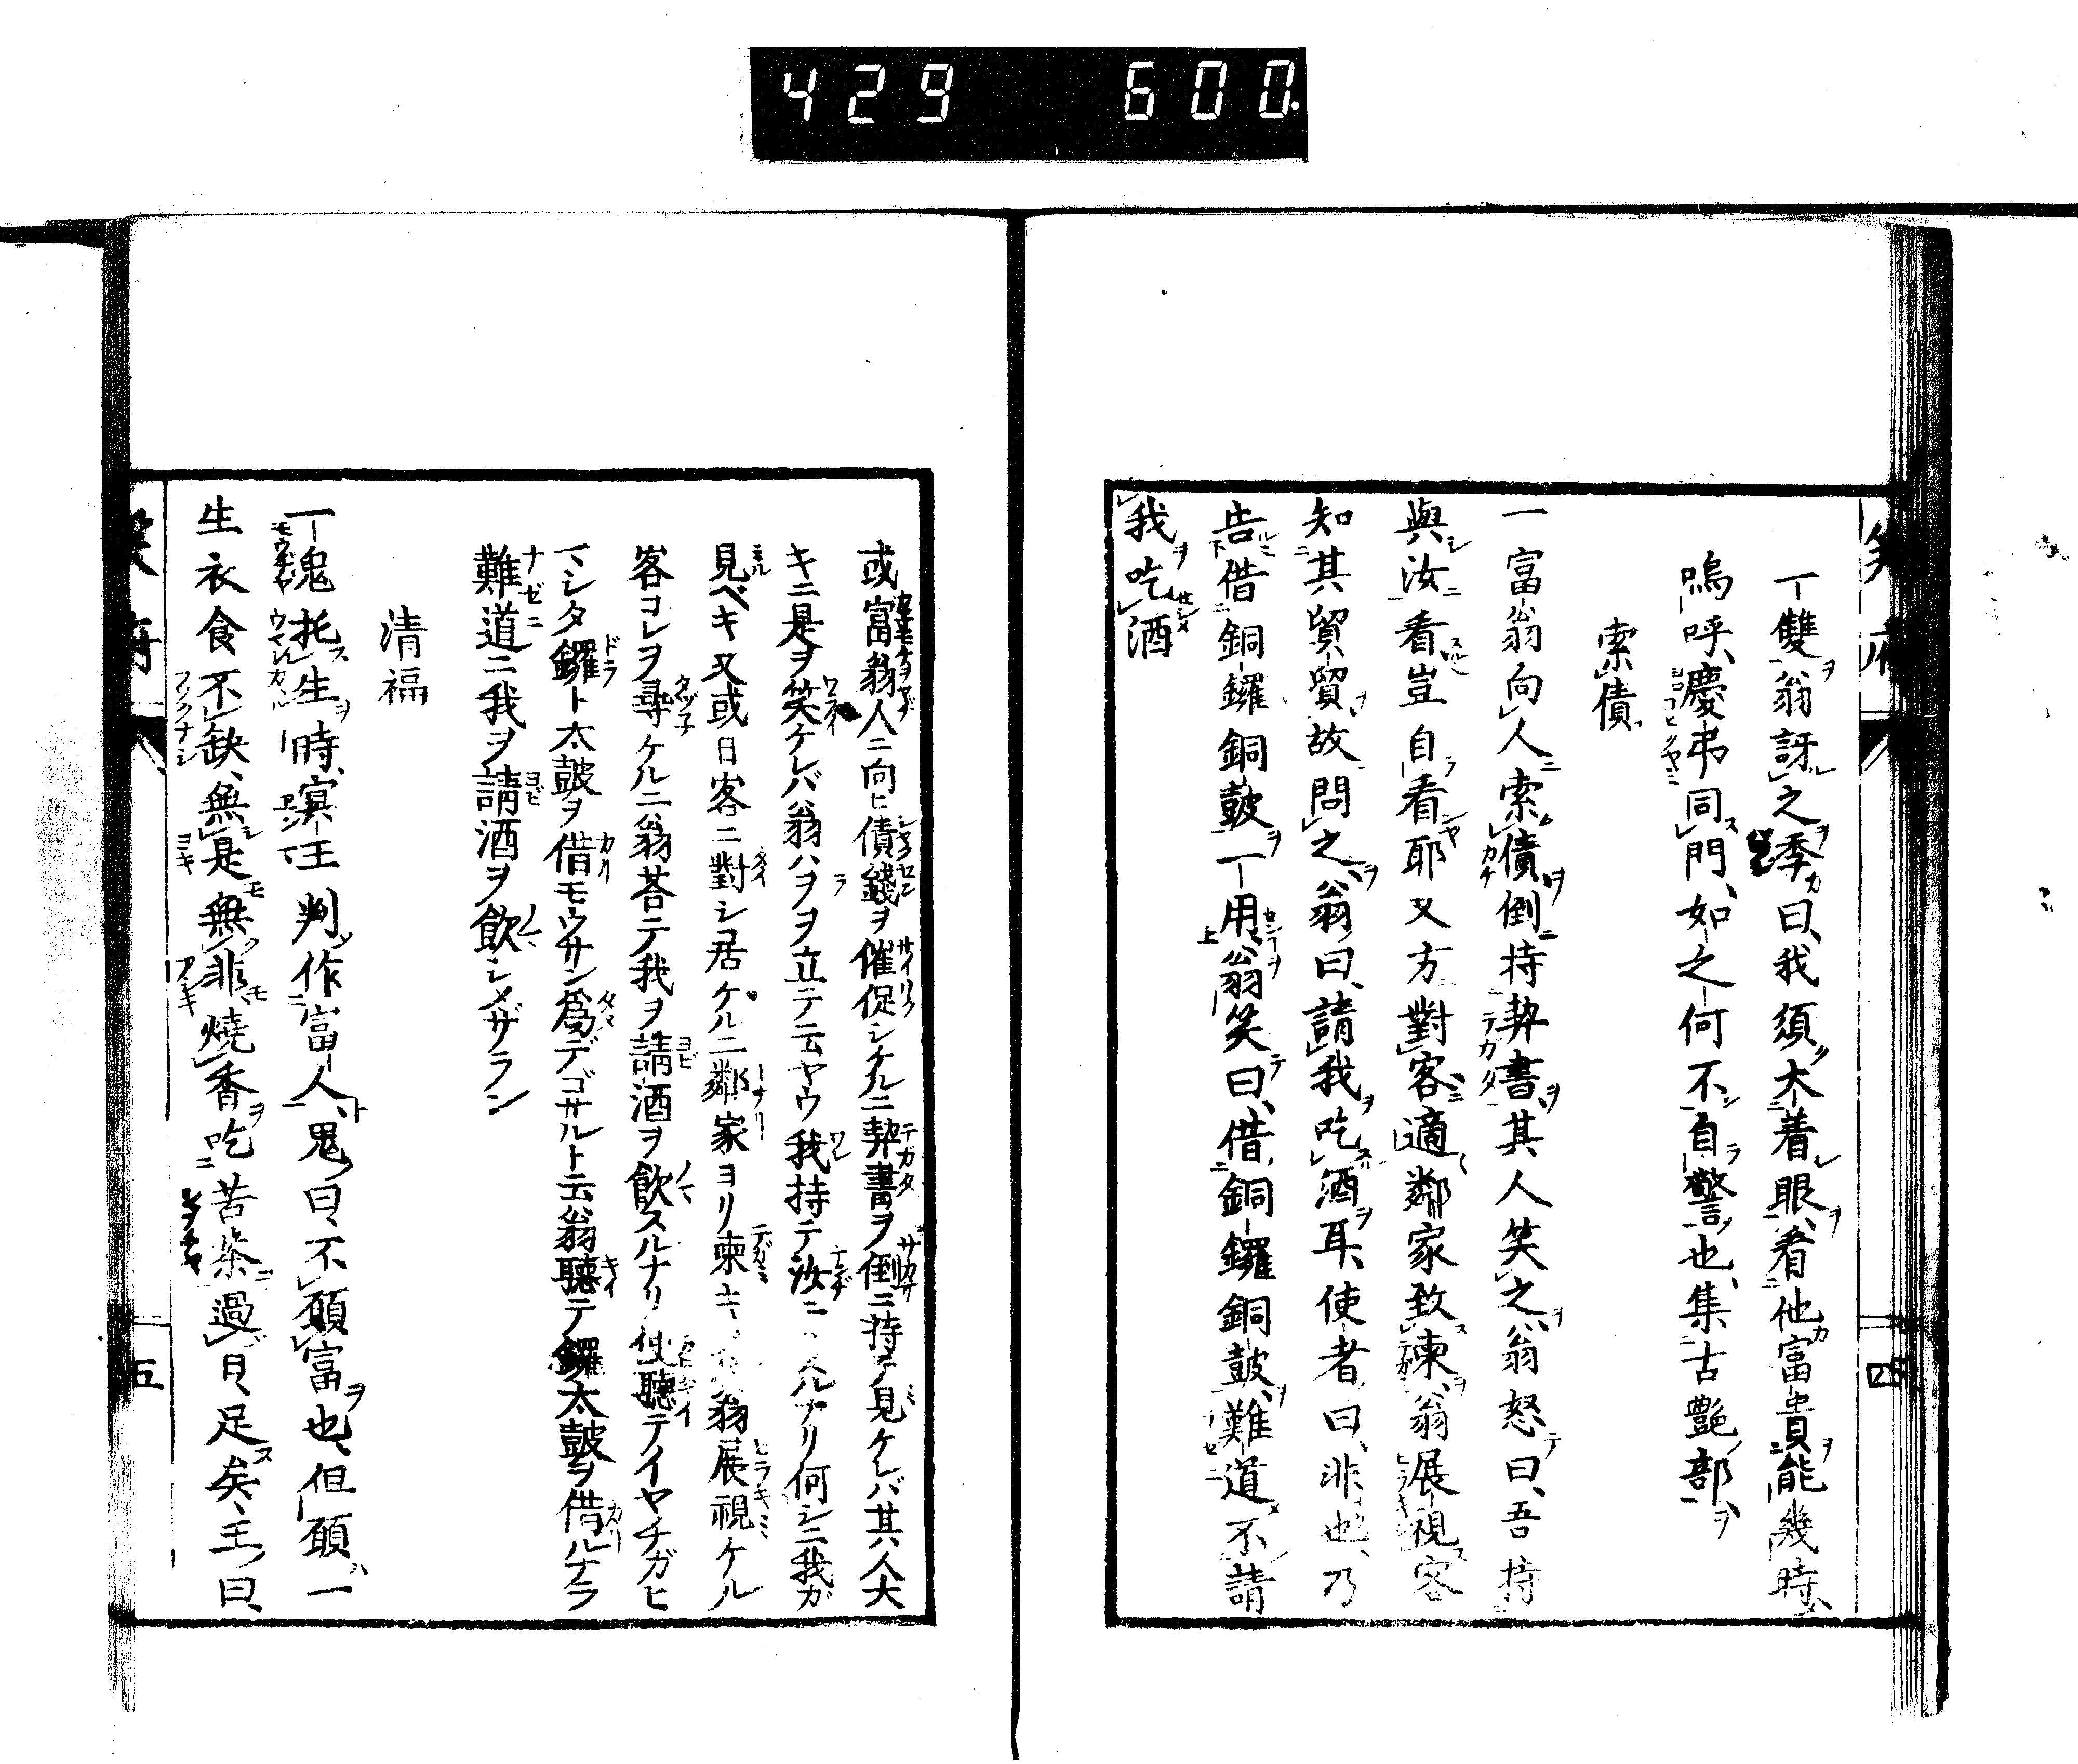 429 600.
笑府
四
一雙翁訝之季曰我須大着眼看他富貴能幾時
嗚呼慶弔同門如之何不自警也集古艶部
索債
一富翁向人索債倒持契書其人笑之翁怒曰吾持
與汝看豈自看耶又方對客適鄰家致柬翁展視客
知其貿貿故問之翁曰請我吃酒耳使者曰非也乃
告借銅鑼銅皷一用翁笑曰借銅鑼銅皷難道不請
我吃酒
或富翁人ニ向ヒ債錢ヲ催促シケルニ契書ヲ倒ニ持テ見ケレバ其人大
キニ是ヲ笑ケレバ翁ハラヲ立テ云ヤウ我持テ汝ニスルナリ何シニ我ガ
見ベキ又或日客ニ對シ居ケルニ鄰家ヨリ柬翁展視ケル
客コレヲ尋ケルニ翁荅テ我ヲ請酒ヲ飲スルナリ使聽テイヤチガヒ
マシタ鑼ト太皷ヲ借モウサン爲デゴザルト云翁聽テ鑼太皷ヲ借ルナラ
難道ニ我ヲ請酒ヲ飲シメザラン
清福
一鬼托生時冥王判作富人鬼曰不願富也但願一
生衣食不缺無是無非燒香吃苦茶過日足矣王曰
笑府
五